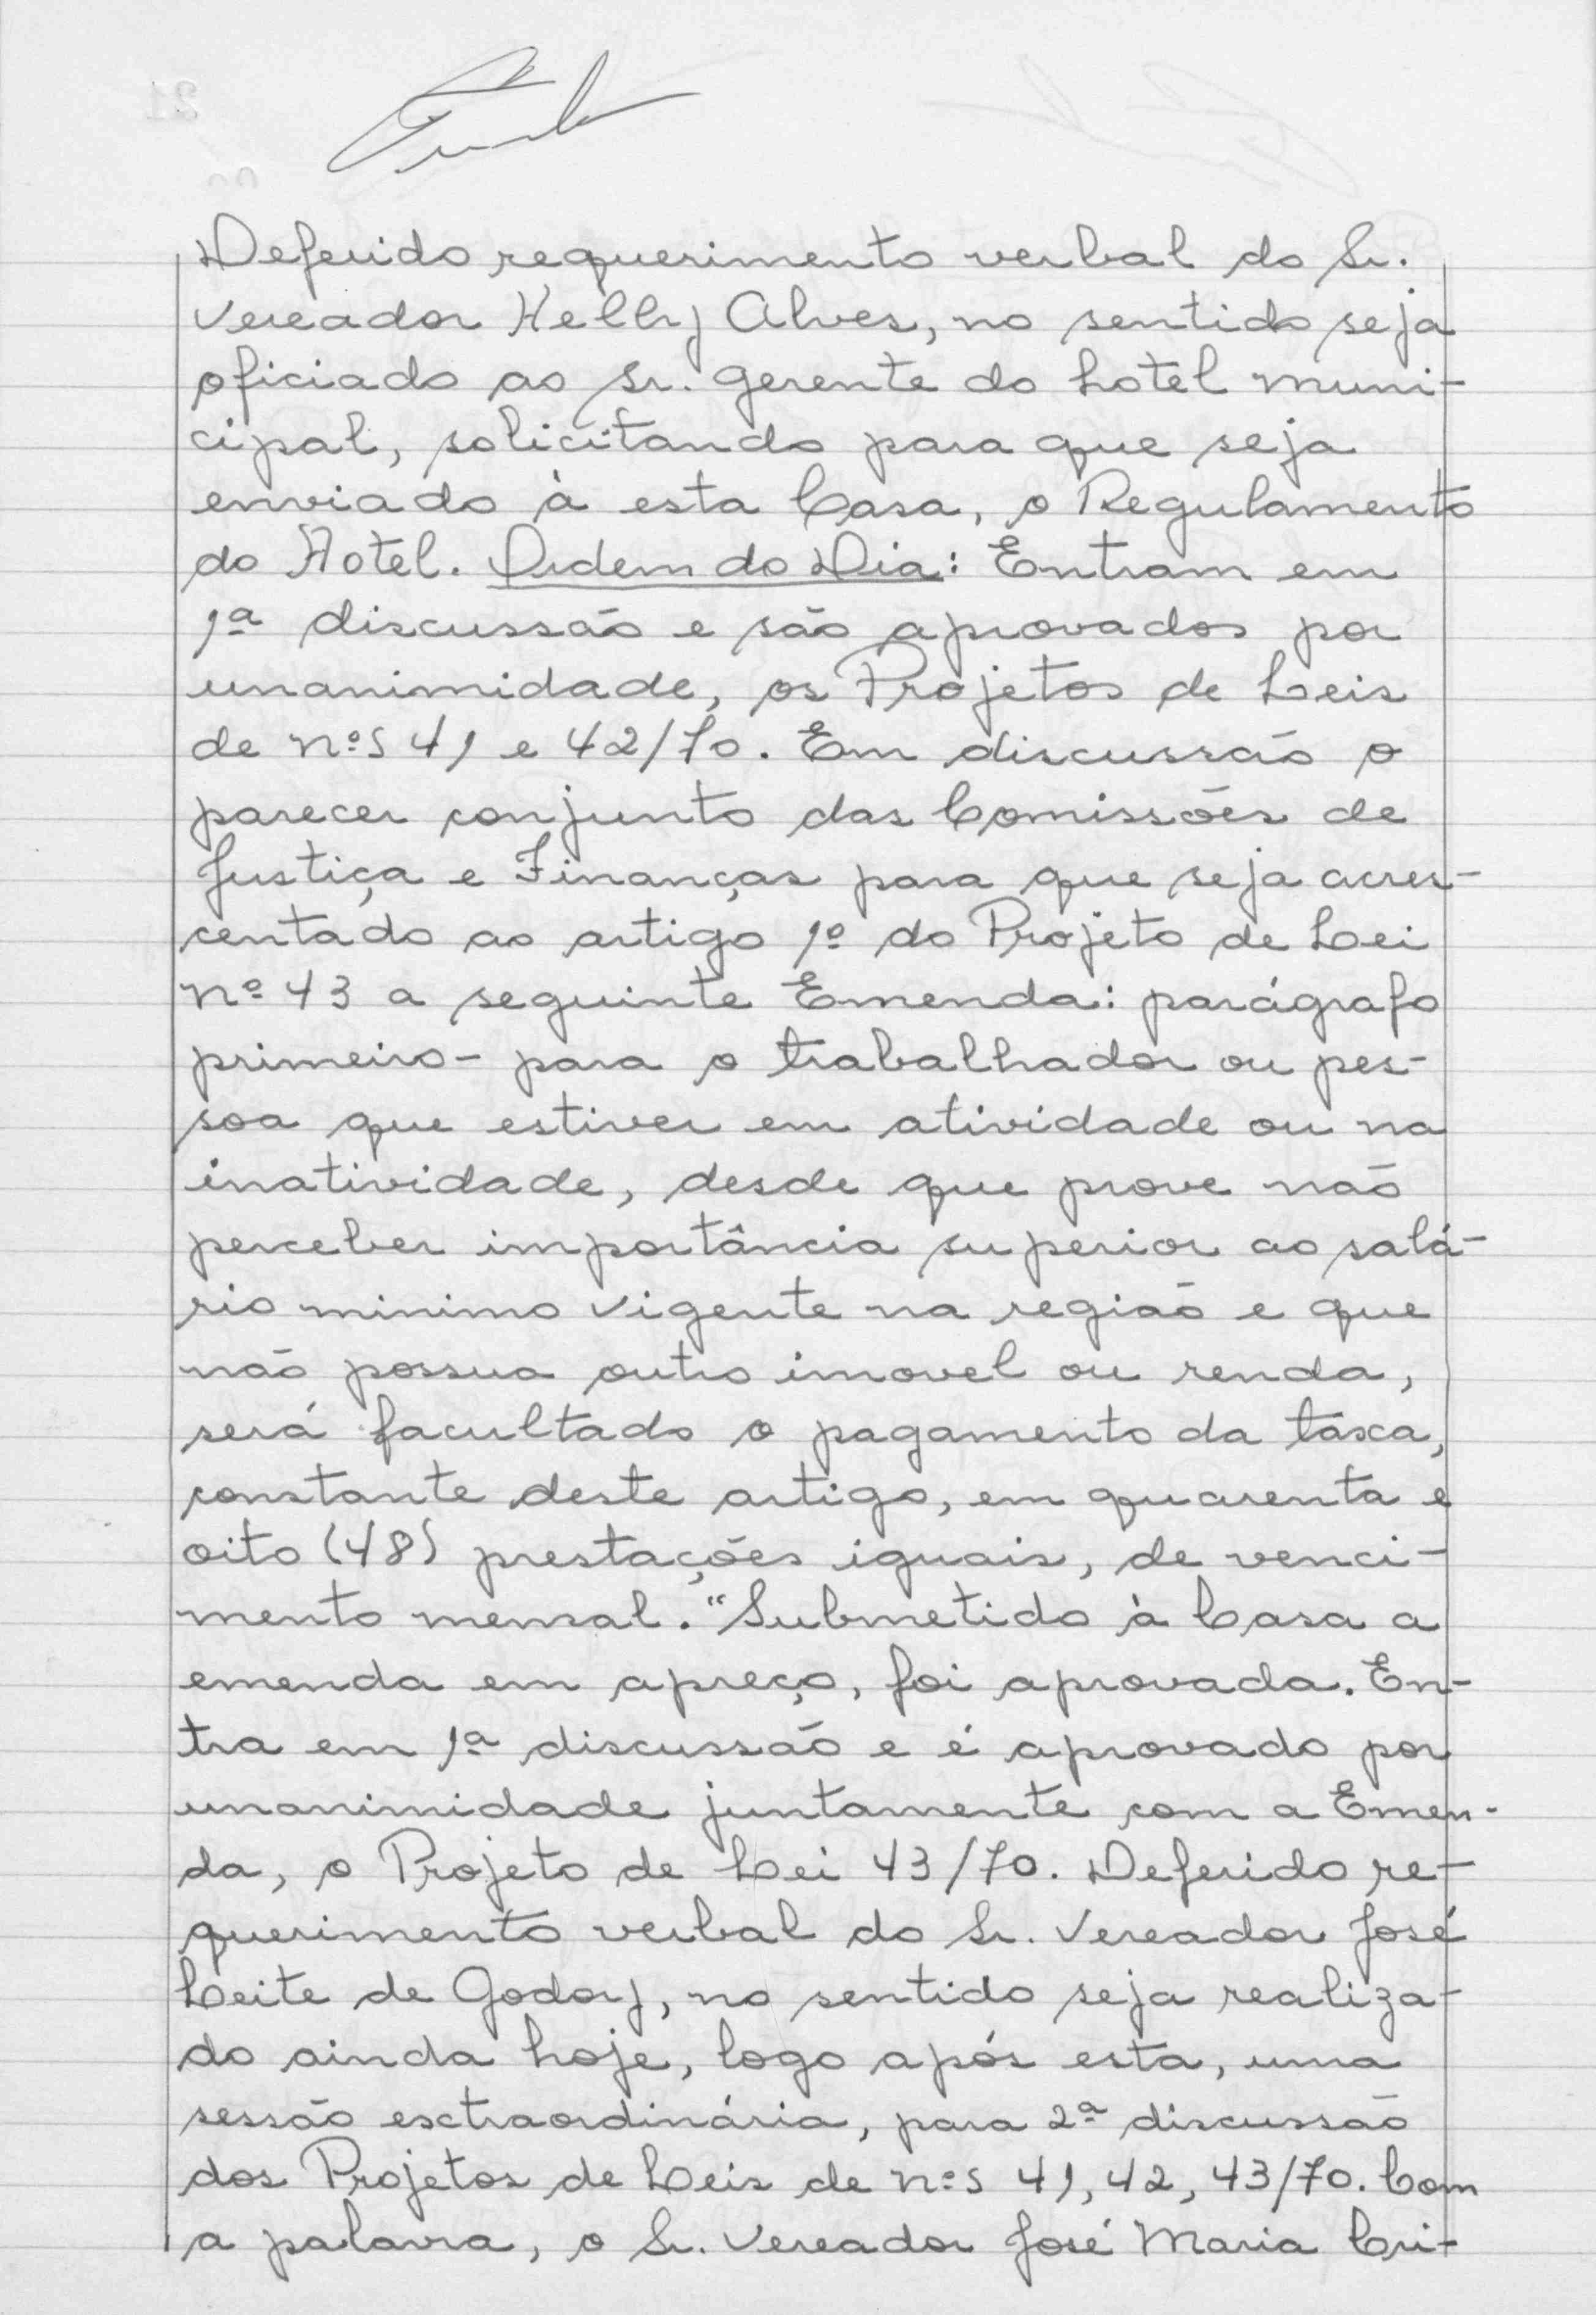 Deferido requerimento verbal do Sr.
Vereador Helly Alves, no sentido seja
oficiado ao Sr. gerente do hotel muni-
cipal, solicitando para que seja
enviado à esta Casa, o Regulamento
do Hotel. Ordem do Dia: Entram em
1ª discussão e são aprovados por
unanimidade, os Projetos de Leis
de nºs 41 e 42/70. Em discussão o
parecer conjunto das Comissões de
Justiça e Finanças para que seja acres-
centado ao artigo 1º do Projeto de Lei
nº 43 a seguinte Emenda: parágrafo
primeiro - para o trabalhador ou pes-
soa que estiver em atividade ou na
inatividade, desde que prove não
perceber importância superior ao salá-
rio minimo vigente na região e que
não possua outro imovel ou renda,
será facultado o pagamento da taxa,
constante deste artigo, em quarenta e
oito (48) prestações iguais, de venci-
mento mensal." Submetido à Casa a
emenda em apreço, foi aprovada. En-
tra em 1ª discussão e é aprovado por
unanimidade juntamente com a Emen-
da, o Projeto de Lei 43/70. Deferido re-
querimento verbal do Sr. Vereador José
Leite de Godoy, no sentido seja realiza-
do ainda hoje, logo após esta, uma
sessão extraordinária, para 2ª discussão
dos Projetos de Leis de nºs 41, 42, 43/70. Com
a palavra, o Sr. Vereador José Maria Cri-